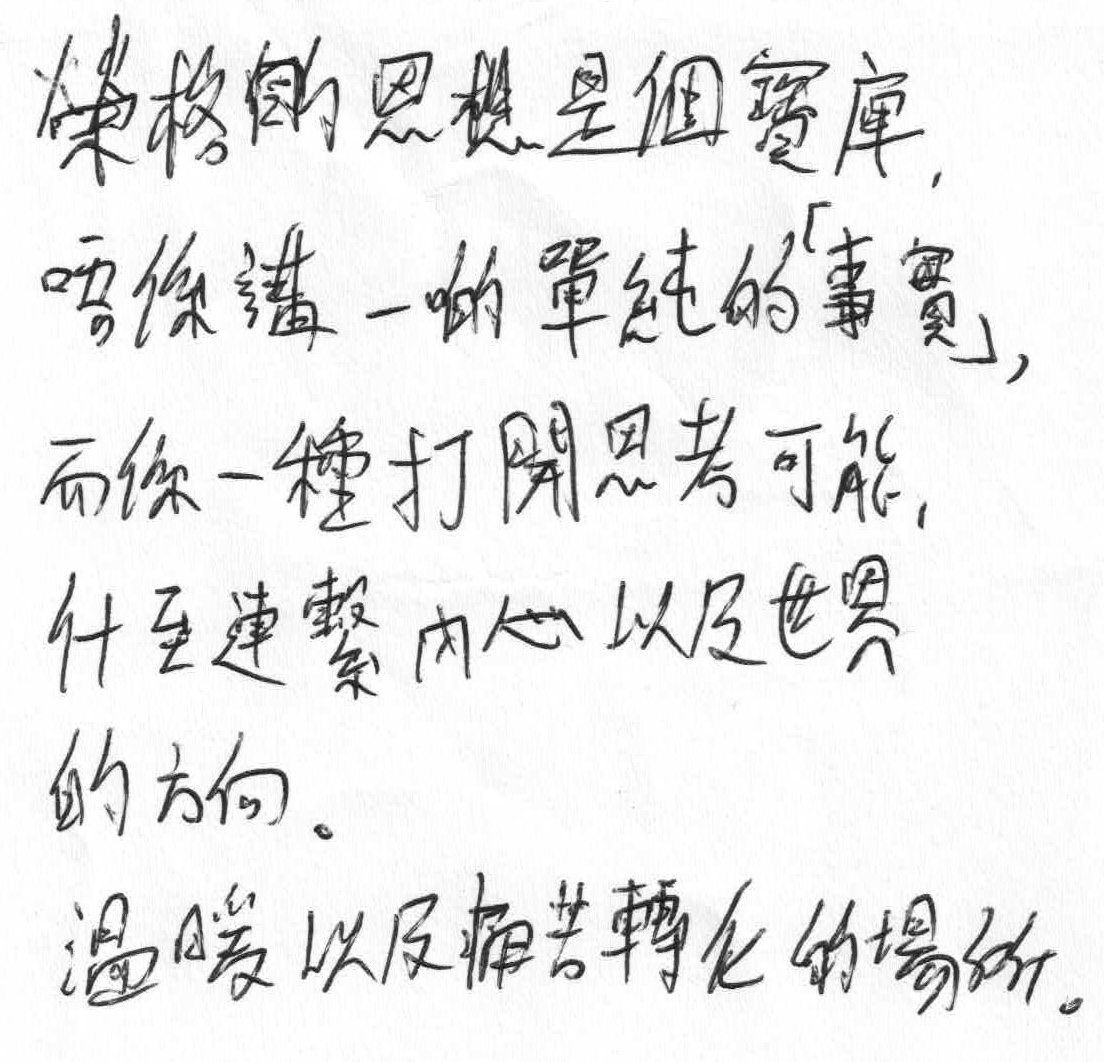 榮格的思想是個寶庫,
唔係講一啲單純的「事實」,
而係一種打開思考可能,
什至連繫內心以及世界
的方向。
溫暖以及痛苦轉化的場所。